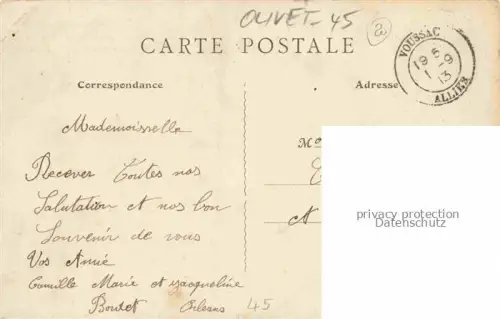 OLIVET-45
CARTE POSTALE
VOUSSAC
19 5
1-9
13
ALLIER
Correspondance
Adresse
Mademoisselle
Recever toutes nos
Salutation et nos bon
Souvenir de vous
Vos Amie
Camille Marie et Jacqueline
Boutet Orleans 45
privacy protection
Datenschutz